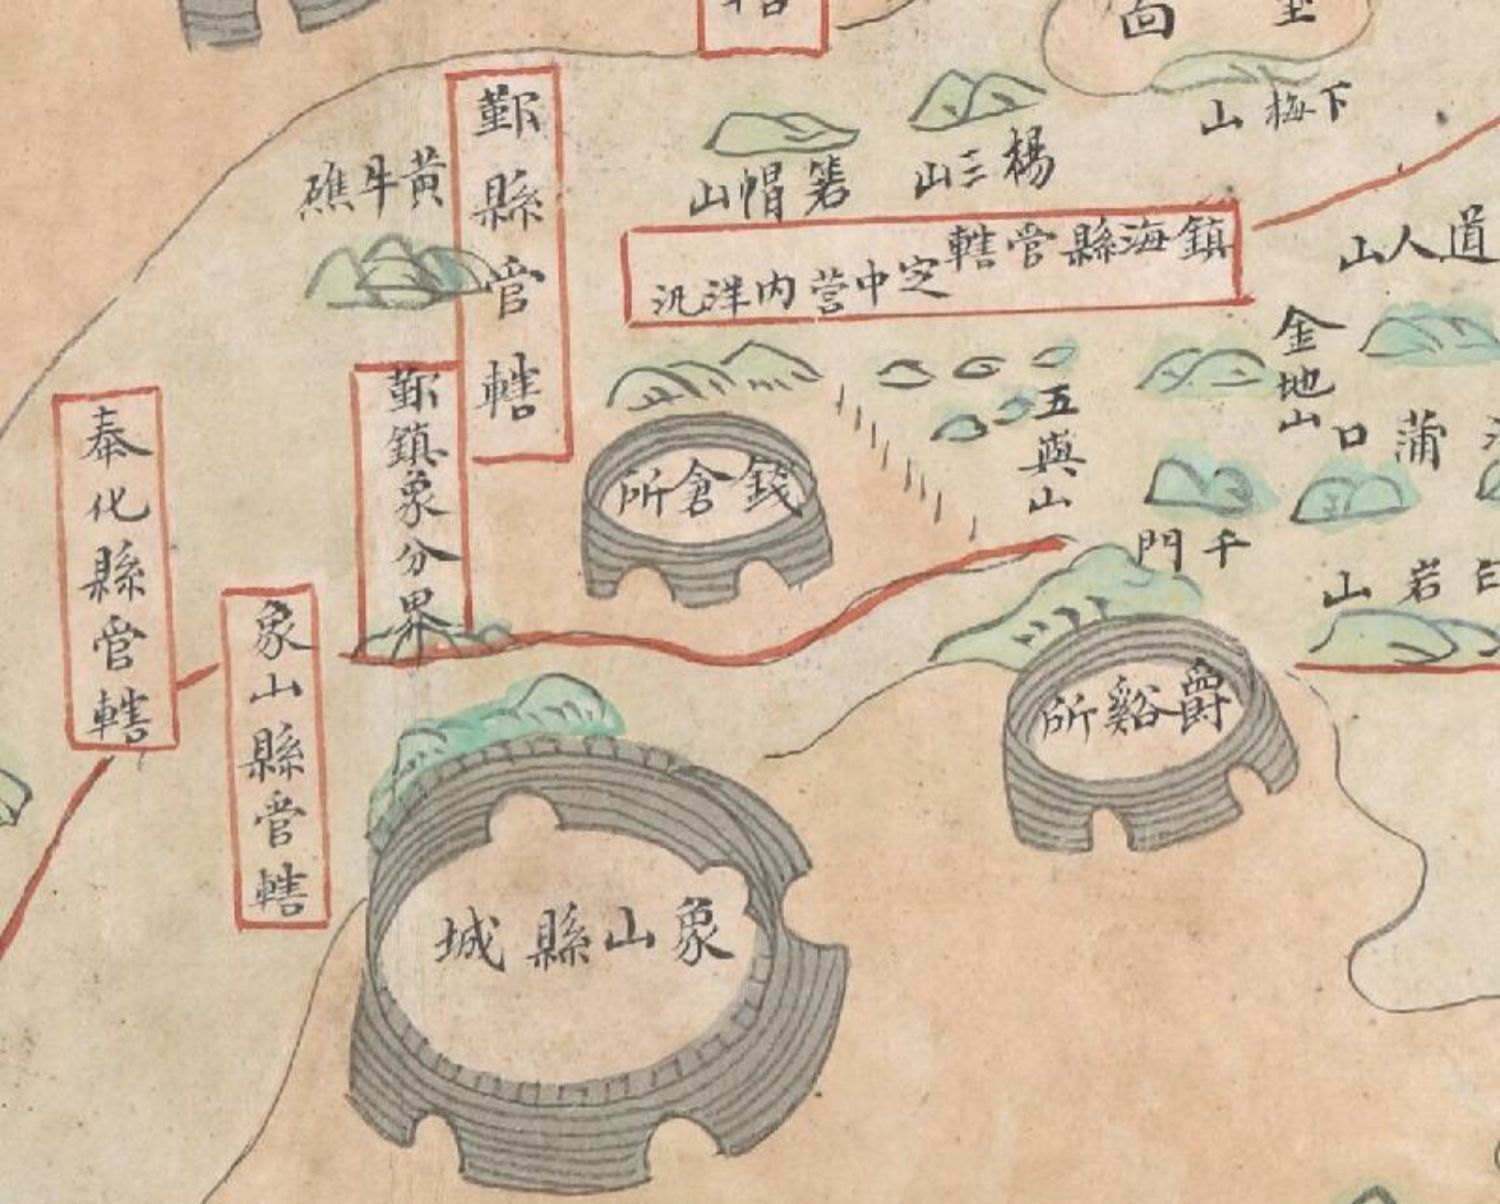 下梅山
楊三山
箬帽山
黃牛礁
鄞縣官轄
鎮海縣官轄
定中營内洋汛
道人山
金地山
五與山
蒲口
鄞鎮象分界
奉化縣官轄
錢倉所
千門
岩山
象山縣官轄
爵谿所
象山縣城